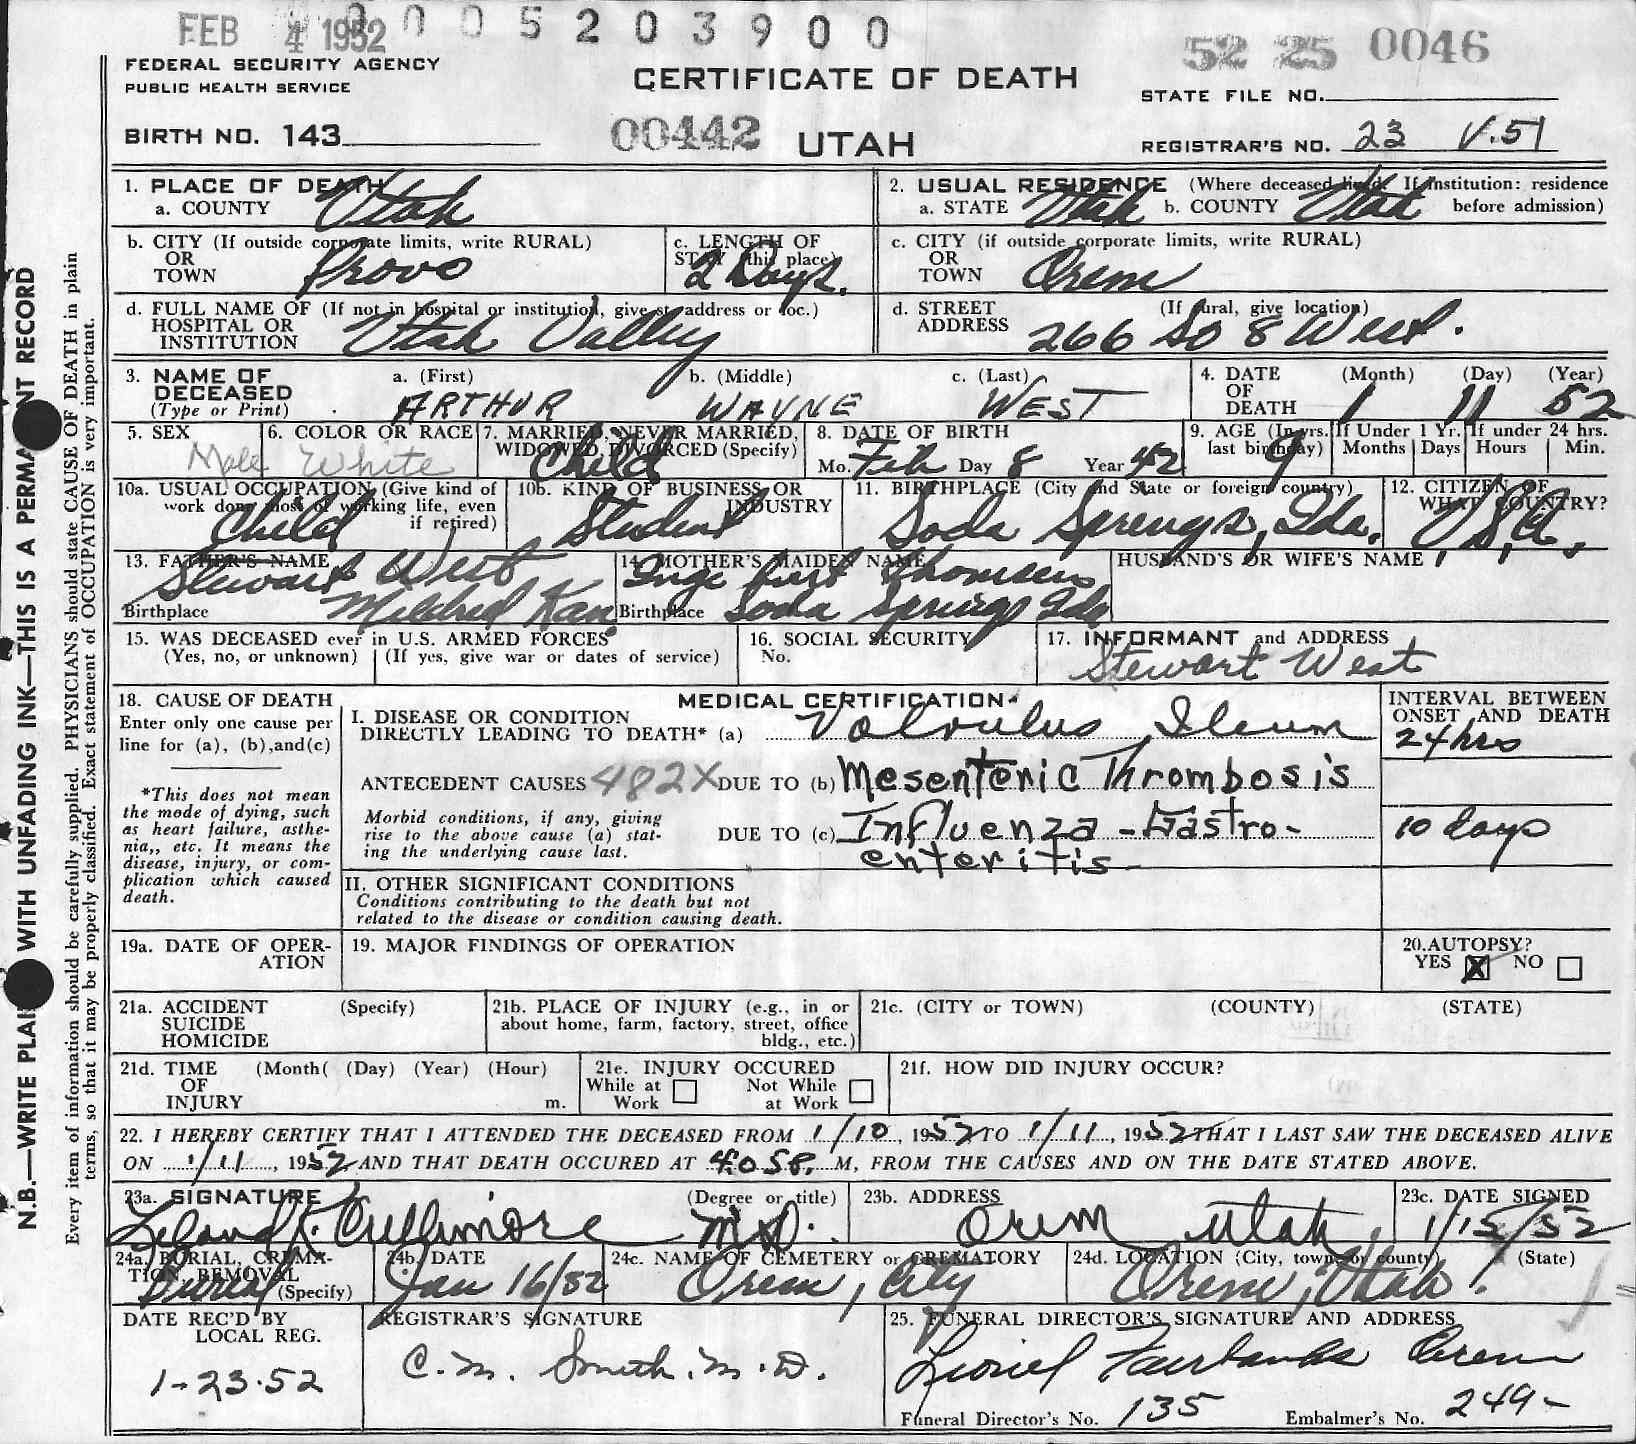 FEB 4 1952 2005203900
52 25 0046
FEDERAL SECURITY AGENCY
PUBLIC HEALTH SERVICE
CERTIFICATE OF DEATH
STATE FILE NO.
BIRTH NO. 143
00442 UTAH
REGISTRAR'S NO. 23 V.51
N.B.—WRITE PLAI WITH UNFADING INK—THIS IS A PERMA NT RECORD
Every item of information should be carefully supplied. PHYSICIANS should state CAUSE OF DEATH in plain
terms, so that it may be properly classified. Exact statement of OCCUPATION is very important.
1. PLACE OF DEATH
a. COUNTY Utah
2. USUAL RESIDENCE (Where deceased lived. If institution: residence
a. STATE Utah b. COUNTY Utah before admission)
b. CITY (If outside corporate limits, write RURAL)
OR
TOWN Provo
c. LENGTH OF
STAY (this place)
2 Days.
c. CITY (if outside corporate limits, write RURAL)
OR
TOWN Orem
d. FULL NAME OF (If not in hospital or institution, give st. address or loc.)
HOSPITAL OR
INSTITUTION Utah Valley
d. STREET (If rural, give location)
ADDRESS 266 So 8 West.
3. NAME OF DECEASED
(Type or Print)
a. (First) b. (Middle) c. (Last)
ARTHUR WAYNE WEST
4. DATE OF DEATH (Month) (Day) (Year)
1 11 52
5. SEX
Male
6. COLOR OR RACE
White
7. MARRIED, NEVER MARRIED,
WIDOWED, DIVORCED (Specify)
Child
8. DATE OF BIRTH
Mo. Feb Day 8 Year 42
9. AGE (In yrs. last birthday) 9
If Under 1 Yr. Months Days
If under 24 hrs. Hours Min.
10a. USUAL OCCUPATION (Give kind of
work done most of working life, even
if retired)
Child
10b. KIND OF BUSINESS OR
INDUSTRY
Student
11. BIRTHPLACE (City and State or foreign country)
Soda Springs, Ida.
12. CITIZEN OF
WHAT COUNTRY?
U.S.A.
13. FATHER'S NAME
Stewart West
Birthplace Mildred Kan.
14. MOTHER'S MAIDEN NAME
Thomsen
Birthplace Soda Springs Ida
HUSBAND'S OR WIFE'S NAME
15. WAS DECEASED ever in U.S. ARMED FORCES
(Yes, no, or unknown) (If yes, give war or dates of service)
16. SOCIAL SECURITY
No.
17. INFORMANT and ADDRESS
Stewart West
18. CAUSE OF DEATH
Enter only one cause per
line for (a), (b),and(c)
*This does not mean
the mode of dying, such
as heart failure, asthe-
nia,, etc. It means the
disease, injury, or com-
plication which caused
death.
MEDICAL CERTIFICATION
I. DISEASE OR CONDITION
DIRECTLY LEADING TO DEATH* (a) Volvulus Ileum
ANTECEDENT CAUSES 482X DUE TO (b) Mesenteric Thrombosis
Morbid conditions, if any, giving
rise to the above cause (a) stat-
ing the underlying cause last.
DUE TO (c) Influenza - Gastro-
enteritis
INTERVAL BETWEEN
ONSET AND DEATH
24 hrs
10 days
II. OTHER SIGNIFICANT CONDITIONS
Conditions contributing to the death but not
related to the disease or condition causing death.
19a. DATE OF OPER-
ATION
19. MAJOR FINDINGS OF OPERATION
20. AUTOPSY?
YES X NO
21a. ACCIDENT (Specify)
SUICIDE
HOMICIDE
21b. PLACE OF INJURY (e.g., in or
about home, farm, factory, street, office
bldg., etc.)
21c. (CITY or TOWN) (COUNTY) (STATE)
21d. TIME (Month( (Day) (Year) (Hour)
OF
INJURY m.
21e. INJURY OCCURED
While at Work Not While at Work
21f. HOW DID INJURY OCCUR?
22. I HEREBY CERTIFY THAT I ATTENDED THE DECEASED FROM 1/10, 1952 TO 1/11, 1952 THAT I LAST SAW THE DECEASED ALIVE
ON 1/11, 1952 AND THAT DEATH OCCURED AT 4:05P. M, FROM THE CAUSES AND ON THE DATE STATED ABOVE.
23a. SIGNATURE (Degree or title)
Leland K. Cullimore M.D.
23b. ADDRESS
Orem Utah
23c. DATE SIGNED
1/15/52
24a. BURIAL, CREMA-
TION, REMOVAL
(Specify)
Burial
24b. DATE
Jan 16/52
24c. NAME OF CEMETERY or CREMATORY
Orem, City
24d. LOCATION (City, town, or county) (State)
Orem, Utah.
DATE REC'D BY
LOCAL REG.
1-23-52
REGISTRAR'S SIGNATURE
C.M. Smith. M.D.
25. FUNERAL DIRECTOR'S SIGNATURE AND ADDRESS
Lionel Fairbanks Orem
Funeral Director's No. 135 Embalmer's No. 249-